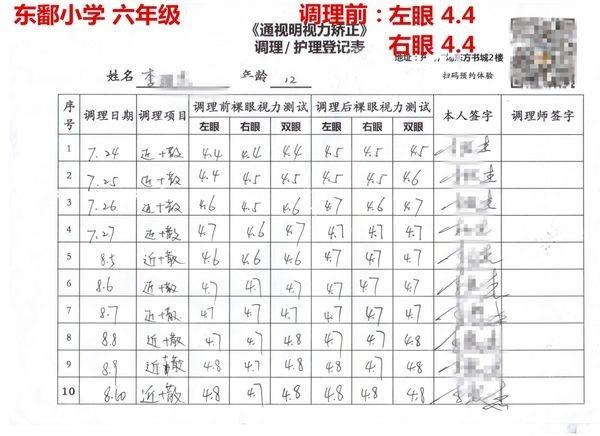 东鄱小学 六年级 调理前：左眼 4.4
《通视明视力矫正》
调理/护理登记表 右眼 4.4
东方书城2楼
姓名 李 年龄 12 扫码预约体验
序号 调理日期 调理项目 调理前裸眼视力测试 调理后裸眼视力测试 本人签字 调理师签字
左眼 右眼 双眼 左眼 右眼 双眼
1 7.24 近+散 4.4 4.4 4.4 4.5 4.5 4.5
2 7.25 近+散 4.4 4.5 4.5 4.5 4.5 4.6
3 7.26 近+散 4.6 4.5 4.6 4.7 4.6 4.7
4 7.27 近+散 4.7 4.6 4.7 4.7 4.7
5 8.5 近+散 4.6 4.6 4.6 4.7 4.7 4.7
6 8.6 近+散 4.7 4.7 4.7 4.7 4.7 4.7
7 8.7 近+散 4.7 4.7 4.7 4.7 4.7 4.7
8 8.8 近+散 4.7 4.7 4.8 4.7 4.7 4.8
9 8.9 近+散 4.8 4.7 4.8 4.8 4.7 4.8
10 8.10 近+散 4.8 4.7 4.8 4.8 4.7 4.8